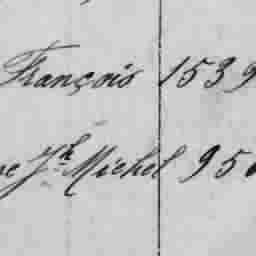 François 1539
Jh Michel 950